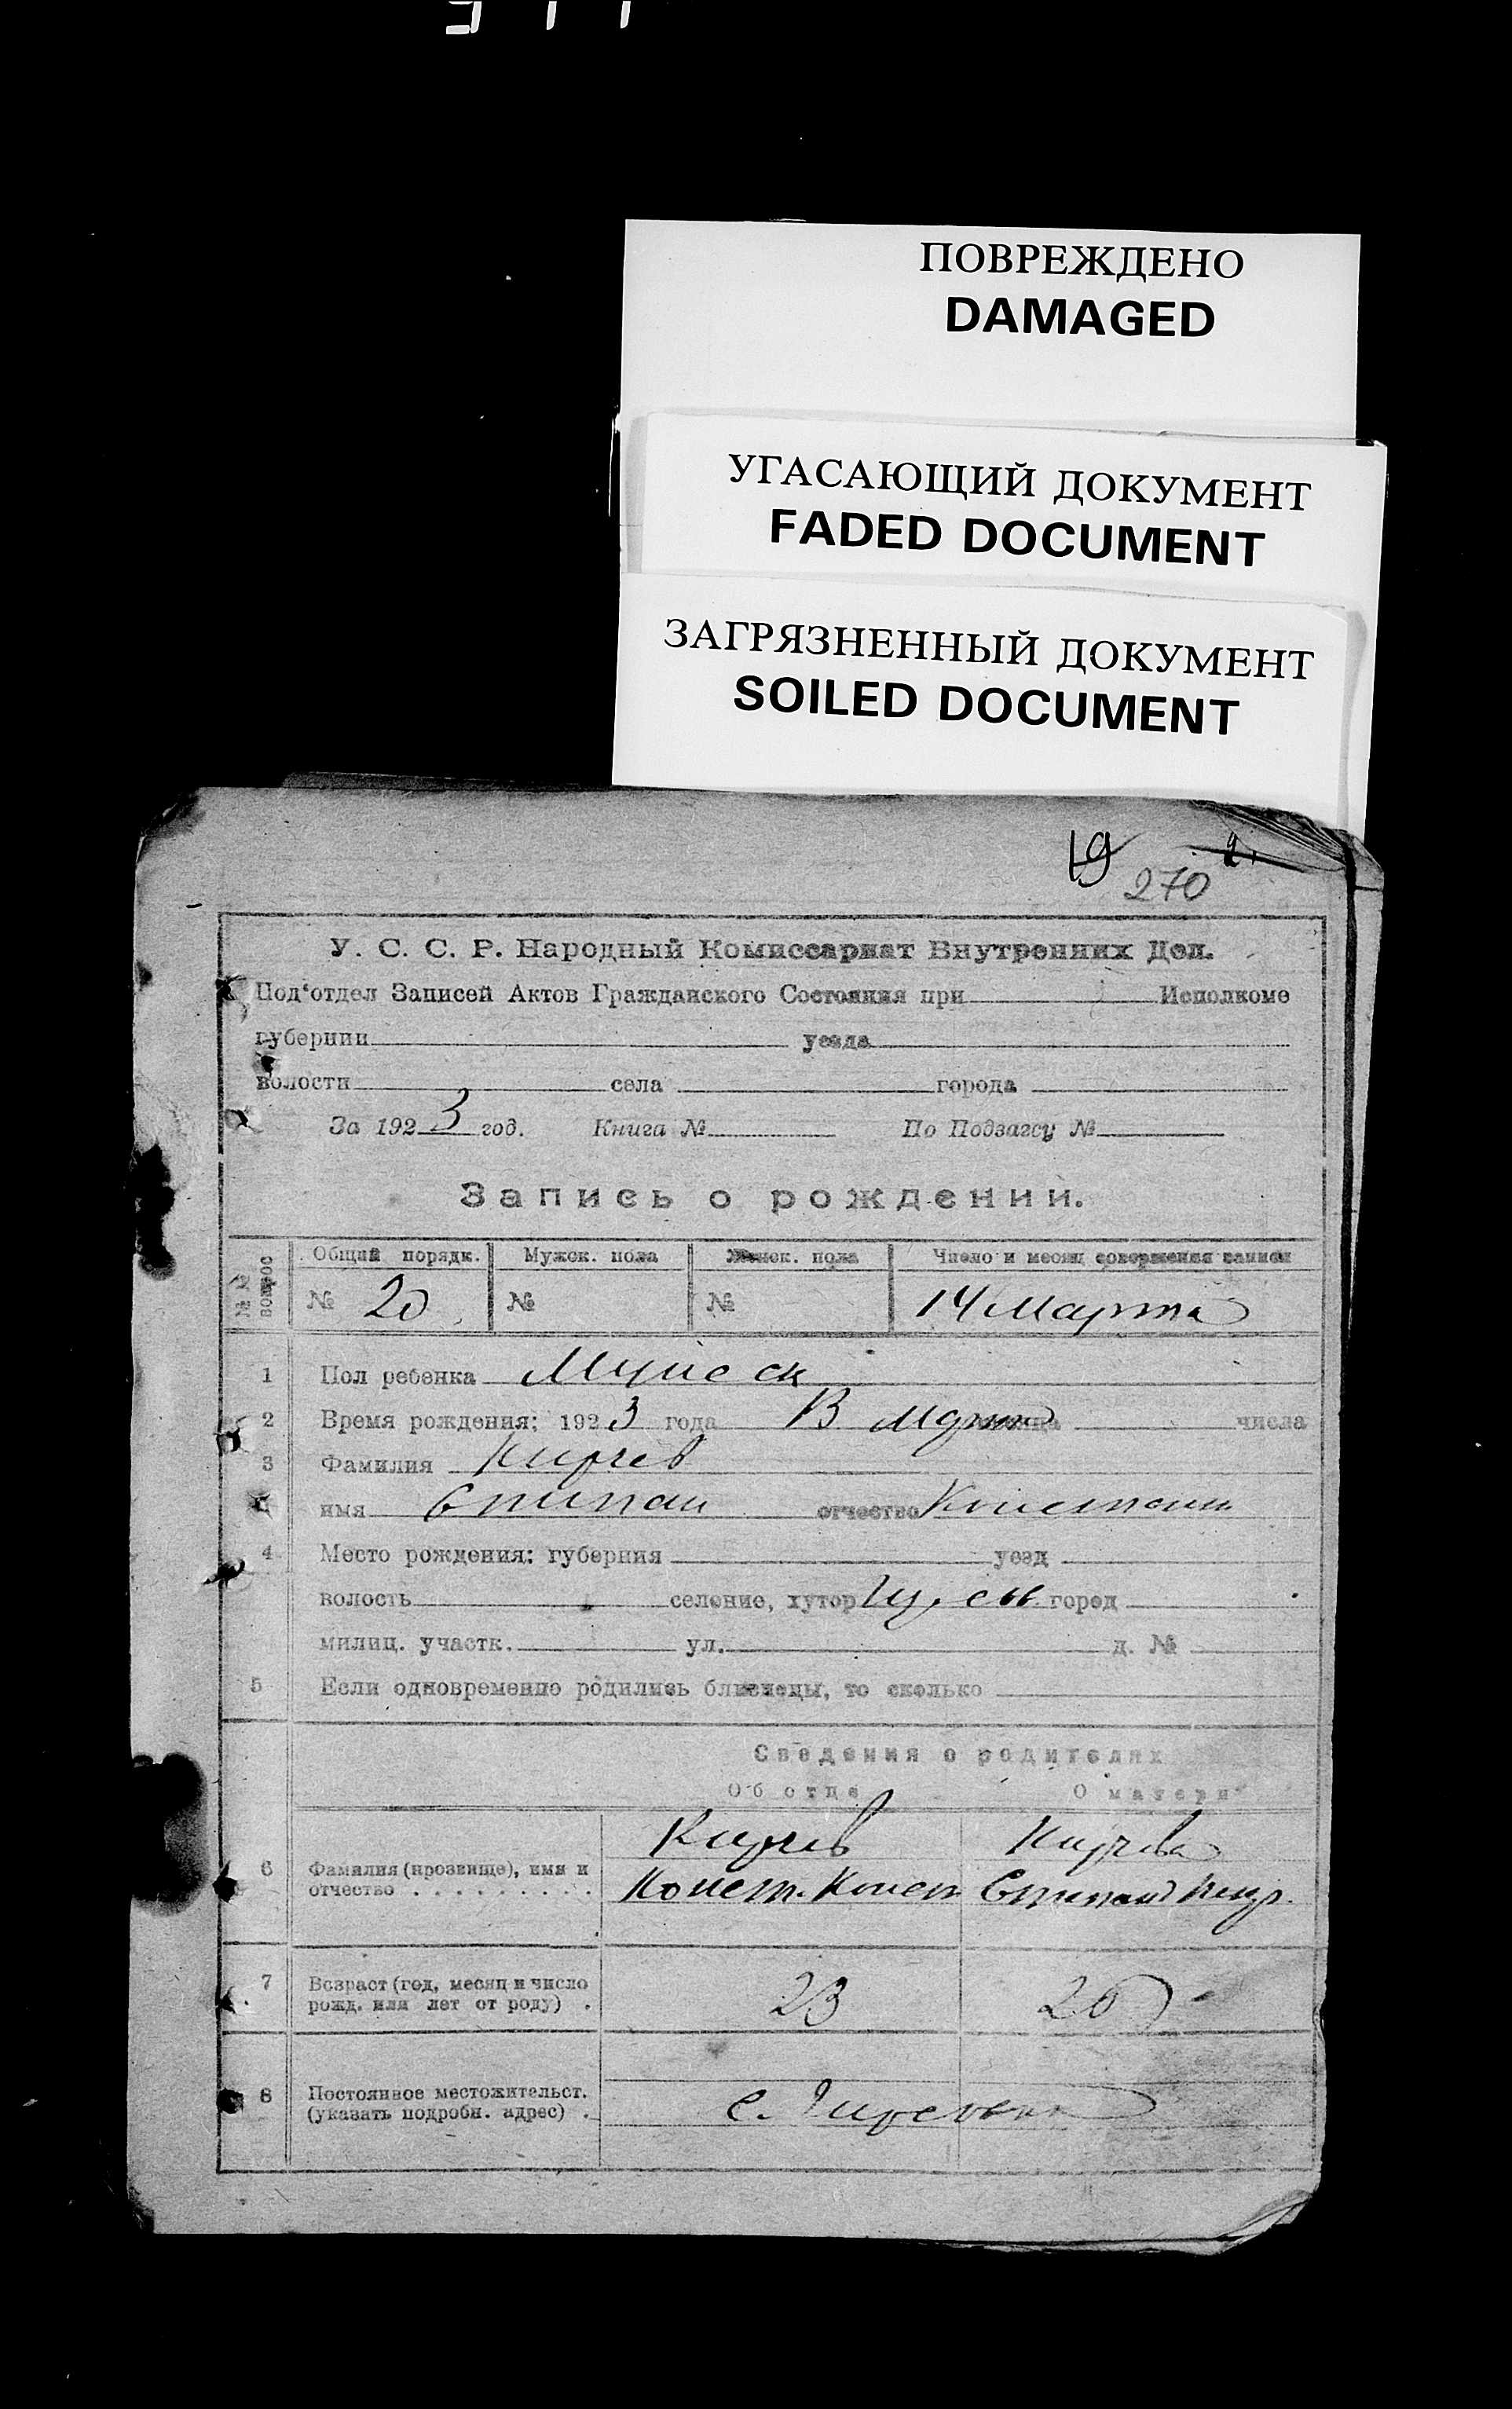 ПОВРЕЖДЕНО
DAMAGED
УГАСАЮЩИЙ ДОКУМЕНТ
FADED DOCUMENT
ЗАГРЯЗНЕННЫЙ ДОКУМЕНТ
SOILED DOCUMENT
19 2
270
У. С. С. Р. Народный Комиссариат Внутренних Дел.
Под'отдел Записей Актов Гражданского Состояния при Исполкоме
губернии уезда
волости села города
За 1923 год. Книга № По Подзагсу №
Запись о рождении.
№№ вопрос Общий порядк. Мужск. пола Женск. пола Число и месяц совершения записи
№ 20 № № 14 Марта
1 Пол ребенка
2 Время рождения: 1923 года месяца числа
3 Фамилия Кирчев
имя отчество Констант
4 Место рождения: губерния уезд
волость селение, хутор город
милиц. участк. ул. д. №
5 Если одновременно родились близнецы, то сколько
Сведения о родителях
Об отце О матери
Кирчев Кирчева
6 Фамилия (прозвище), имя и
отчество . . . . . . . . . Конст. Конст
7 Возраст (год, месяц и число
рожд. или лет от роду) . 23 20
8 Постоянное местожительст.
(указать подробн. адрес) . с.